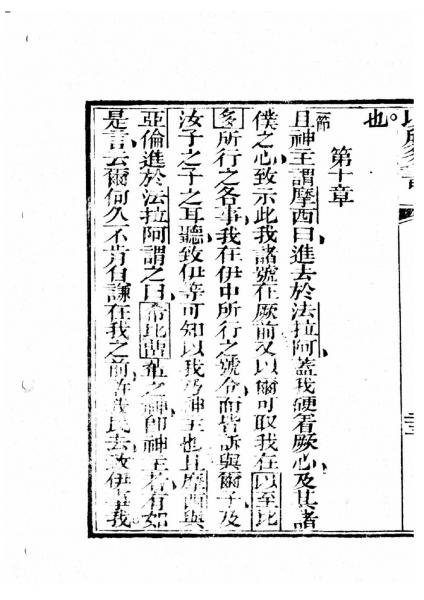 也。
第十章
節且神主謂摩西曰進去於法拉阿蓋我硬看厥心及其諸
僕之心致示此我諸號在厥前又以爾可取我在以至比
多所行之各事我在伊中所行之號令而皆訴與爾子及
汝子之子之耳聽致伊等可知以我乃神主也且摩西與
亞倫進於法拉阿謂之曰希比輩之神即神主者有如
是言去爾何久不肯自謙在我之前許我民去致伊事我